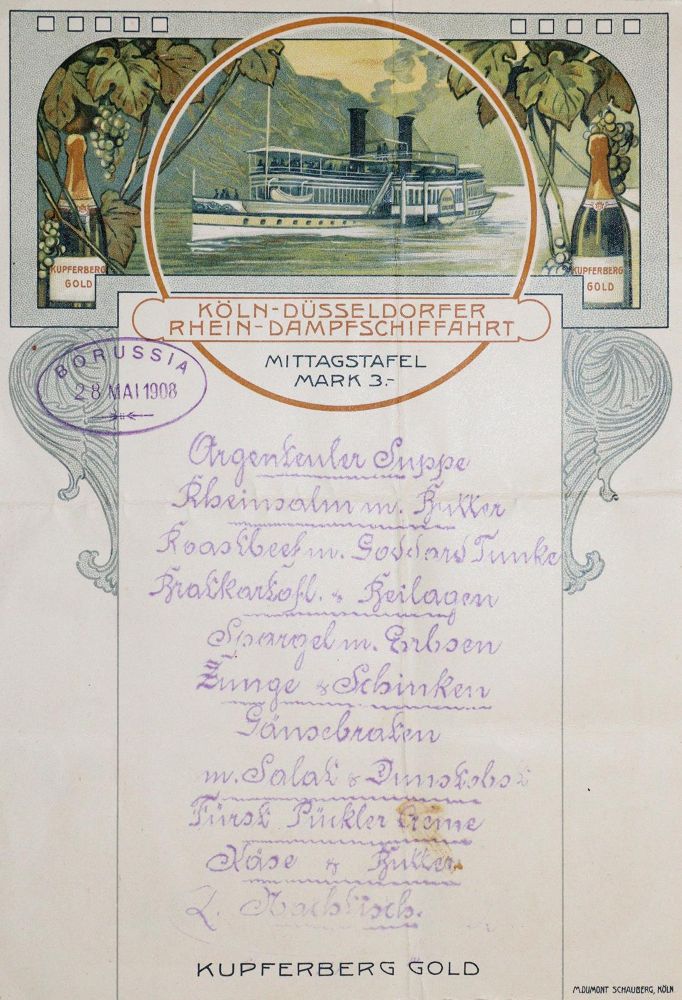 KUPFERBERG
GOLD
KUPFERBERG
GOLD
KÖLN-DÜSSELDORFER
RHEIN-DAMPFSCHIFFAHRT
MITTAGSTAFEL
MARK 3.-
BORUSSIA
28 MAI 1908
Argenteuler Suppe
Rheinsalm m. Butter
Roastbeef m. Goddard Tunke
Bratkartofl. & Beilagen
Spargel m. Erbsen
Zunge & Schinken
Gänsebraten
m. Salat & Dunstobst
Fürst Pückler Creme
Käse & Butter.
Nachtisch.
KUPFERBERG GOLD
M.DUMONT SCHAUBERG, KÖLN